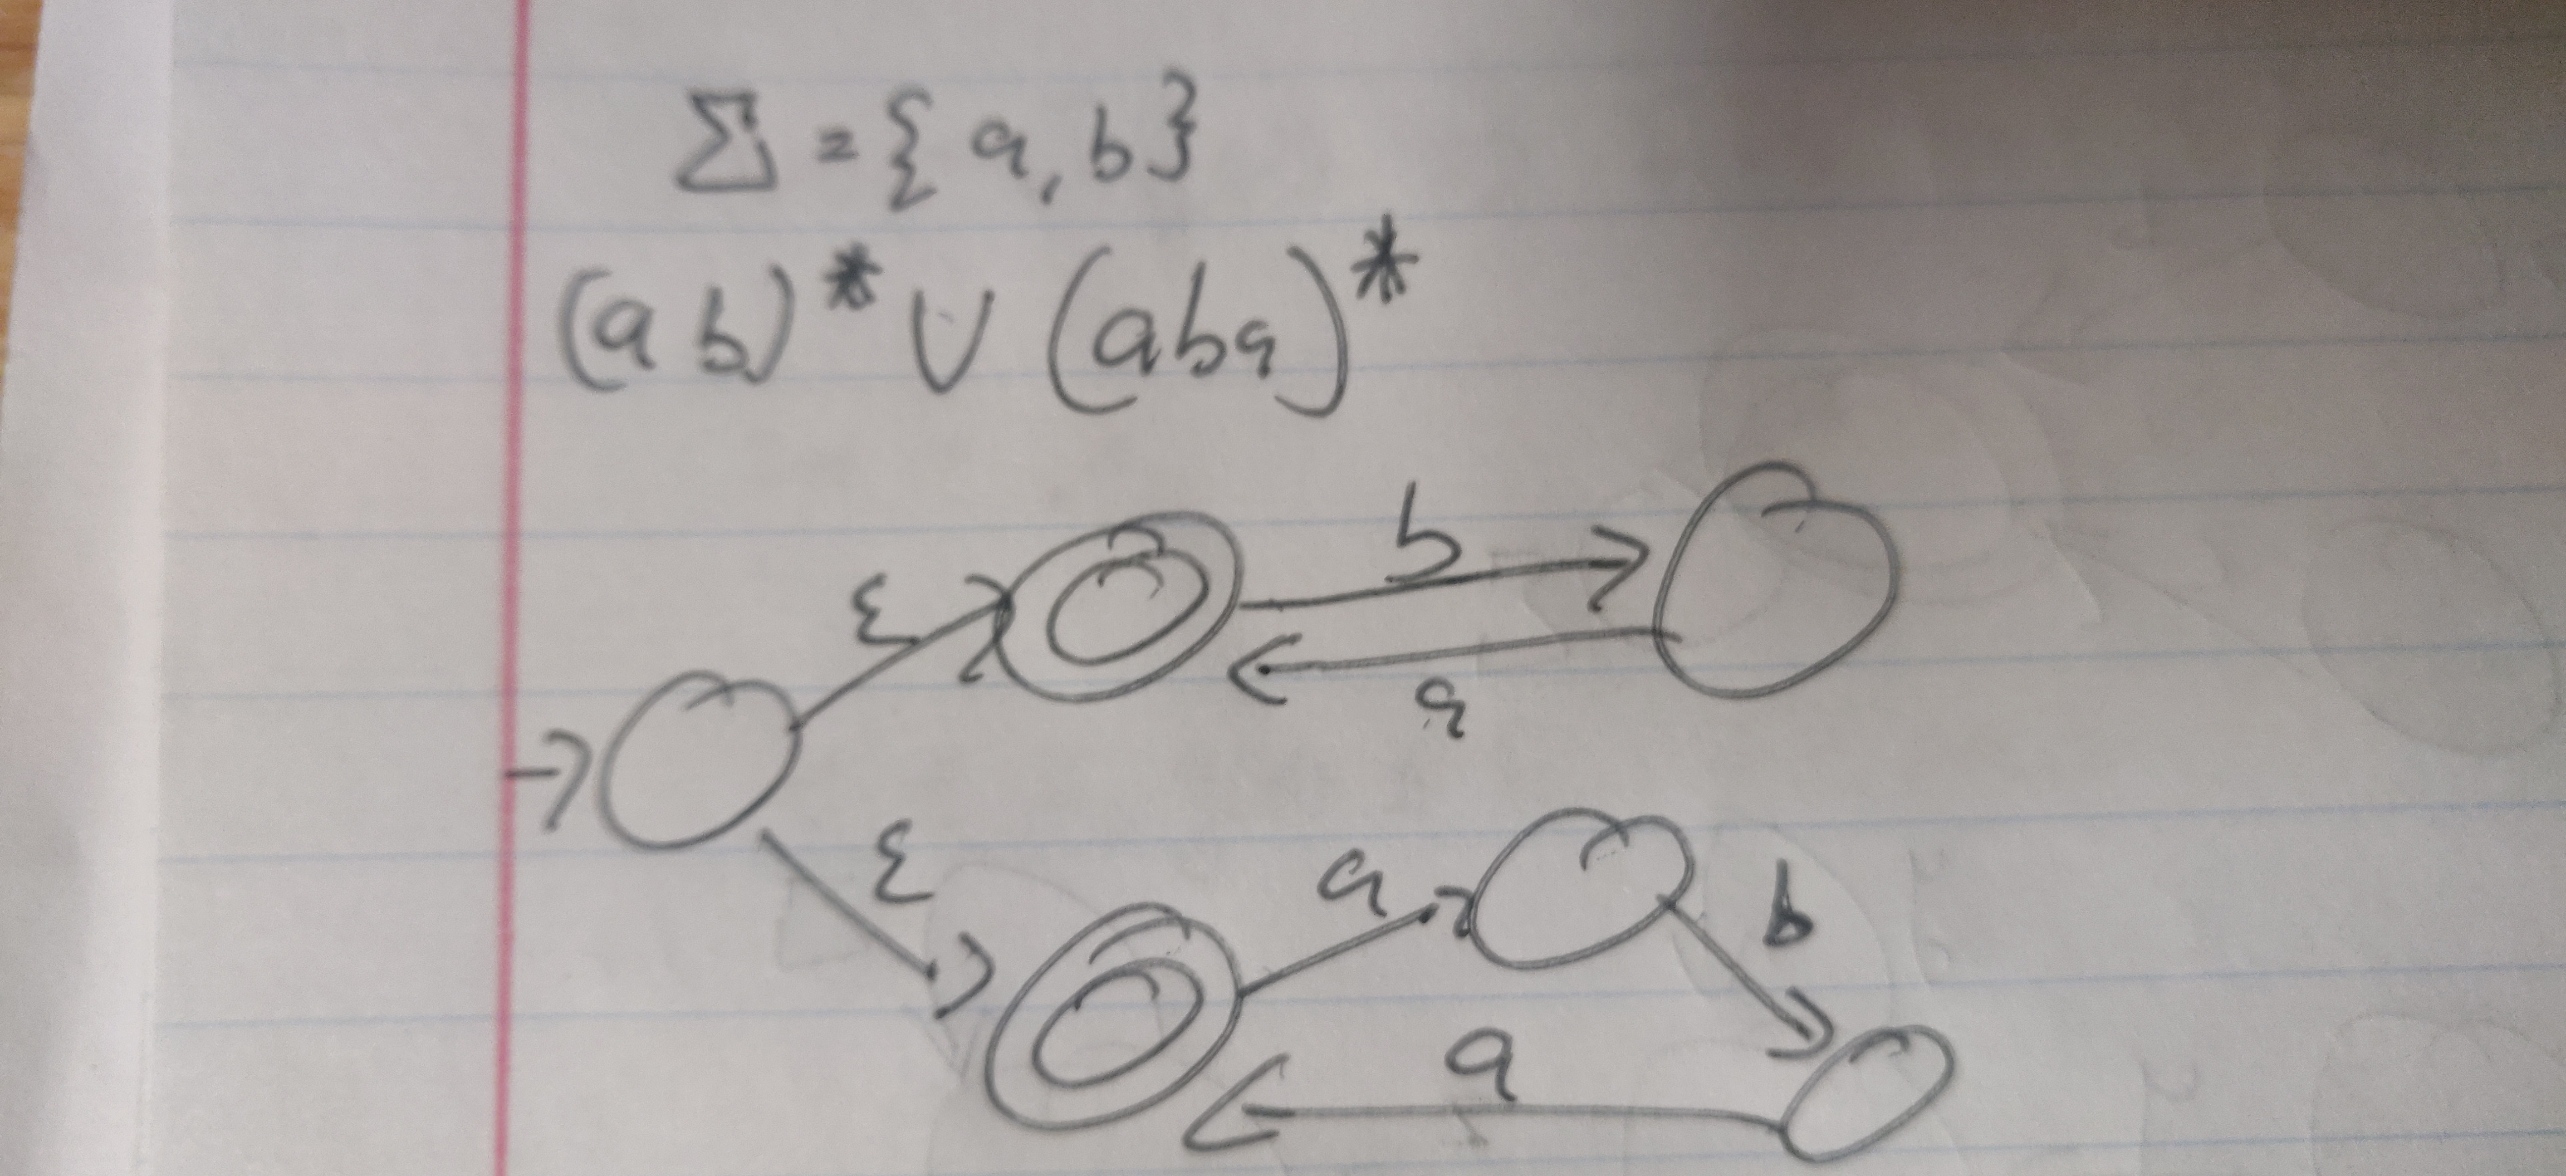 Σ = { a, b }
(ab)* ∪ (aba)*
b
ε
a
ε
a
b
a